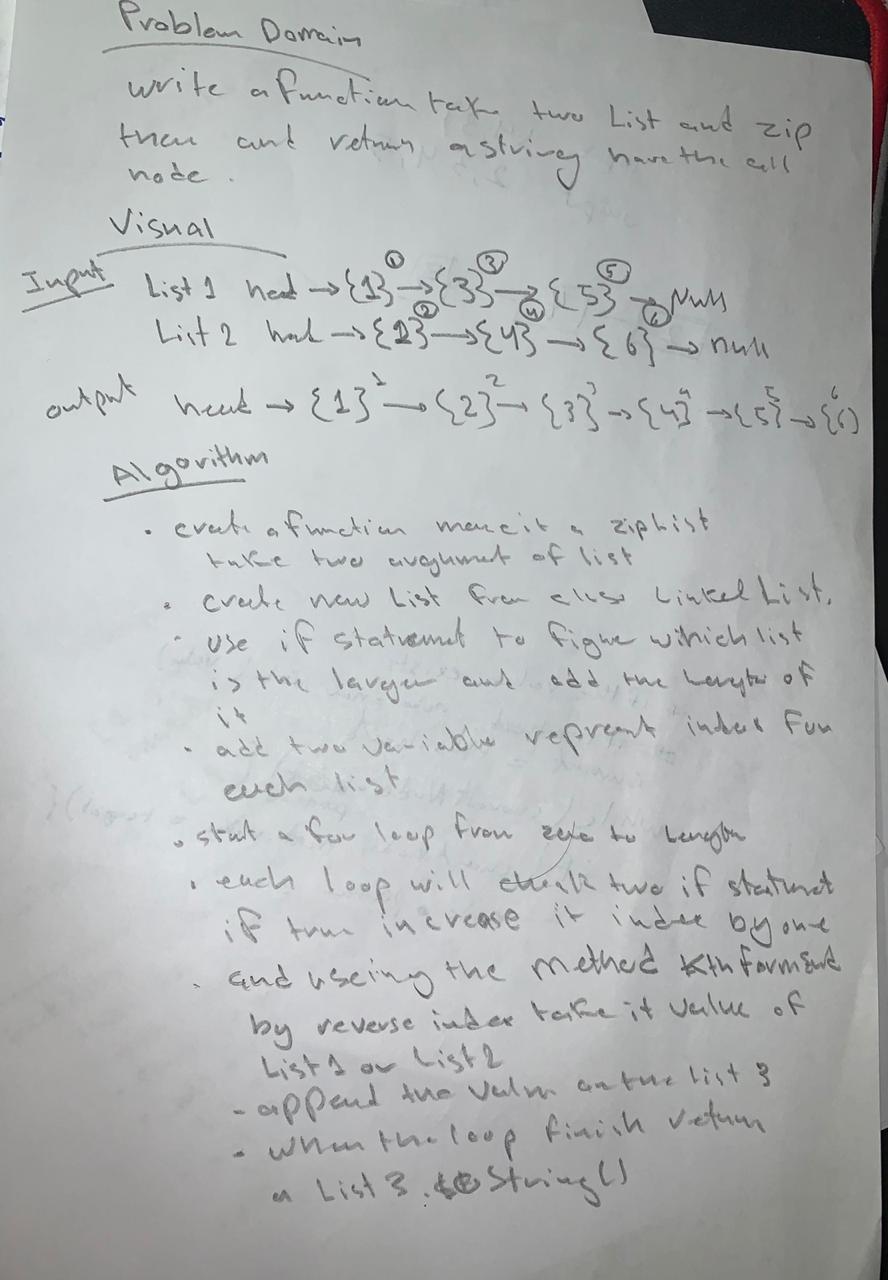 Problem Domain
write a function take two List and zip
them and return a string have the all
node.
Visual
Input List 1 head → {1} ① → {3} ③ → {5} ⑤ → Null
List 2 head → {2} ② → {4} ④ → {6} ⑥ → null
output head → {1} 1 → {2} 2 → {3} 3 → {4} 4 → {5} 5 → {6} 6
Algorithm
• create a function a zipList
take two argument of list
• create new List from class Linked List.
- use if statment to figure which list
is the larger and add the length of
it
• add two variable represent index for
each list
• start a for loop from zero to Length
• each loop will check two if statment
if true increase it index by one
• and useing the method
by reverse index take it value of
List 1 or List 2
- append the value on the list 3
• when the loop finish return
a List 3. to String()